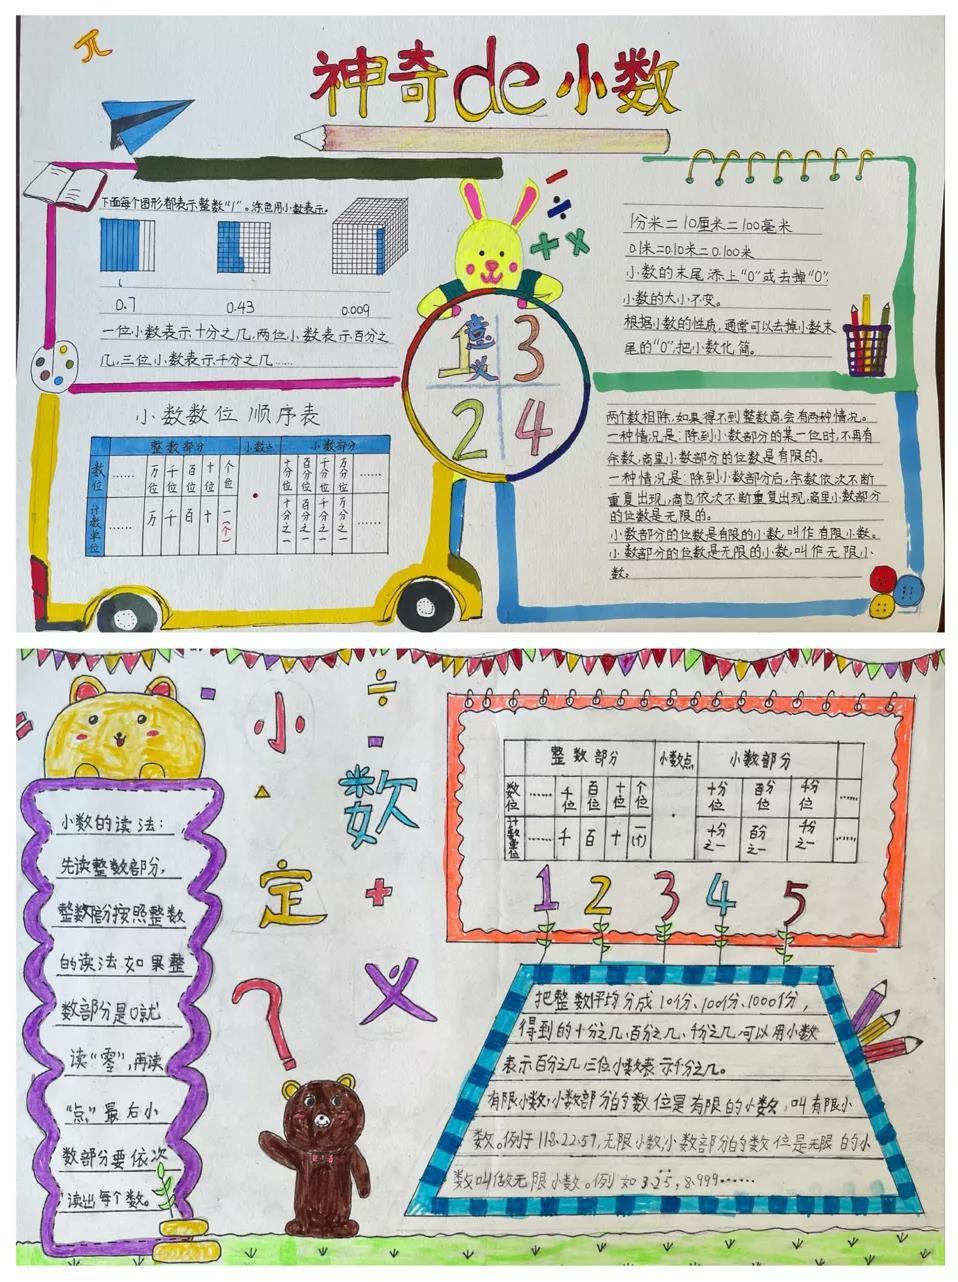 π
神奇de小数
下面每个图形都表示整数“1”。涂色用小数表示。
0.7 0.43 0.009
一位小数表示十分之几,两位小数表示百分之
几,三位小数表示千分之几……
÷
+ ×
1 意义 3
2 4
1分米=10厘米=100毫米
0.1米=0.10米=0.100米
小数的末尾添上“0”或去掉“0”,
小数的大小不变。
根据小数的性质,通常可以去掉小数末
尾的“0”,把小数化简。
小数数位顺序表
整数部分 小数点 小数部分
数位 …… 万位 千位 百位 十位 个位 · 十分位 百分位 千分位 万分位 ……
计数单位 …… 万 千 百 十 一(个) 十分之一 百分之一 千分之一 万分之一 ……
两个数相除,如果得不到整数商,会有两种情况。
一种情况是:除到小数部分的某一位时,不再有
余数,商里小数部分的位数是有限的。
一种情况是:除到小数部分后,余数依次不断
重复出现,商也依次不断重复出现,商里小数部分
的位数是无限的。
小数部分的位数是有限的小数,叫作有限小数。
小数部分的位数是无限的小数,叫作无限小
数。
小数定义
÷
+
?
小数的读法:
先读整数部分,
整数部份按照整数
的读法.如果整
数部分是0就
读“零”,再读
“点”最后小
数部分要依次
读出每个数。
整数部分 小数点 小数部分
数位 …… 千位 百位 十位 个位 · 十分位 百分位 千分位 ……
计数单位 …… 千 百 十 一(个) 十分之一 百分之一 千分之一 ……
1 2 3 4 5
把整数平均分成10份、100份、1000份,
得到的十分之几、百分之几、千分之几可以用小数
表示百分之几三位小数表示千分之几。
有限小数,小数部分的数位是有限的小数,叫有限小
数。例于118.22.57,无限小数,小数部分的数位是无限的小
数叫做无限小数。例如3.2̇5̇,8.999……